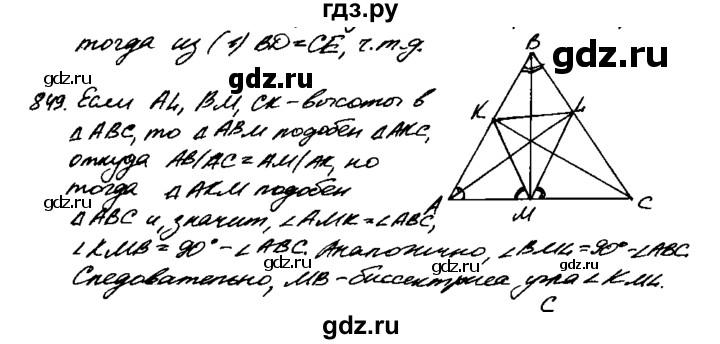 гдз.ру
тогда из (1) BD=CE, ч.т.д.
849. Если AL, BM, CK-высоты в
△ABC, то △ABM подобен △AKC,
откуда AB/AC=AM/AK, но
тогда △AKM подобен
△ABC и, значит, ∠AMK=∠ABC,
∠KMB=90°-∠ABC. Аналогично, ∠BML=90°-∠ABC.
Следовательно, MB-биссектриса угла ∠KML.
C
B
K
L
A
M
C
gdz.ru
gdz.ru
gdz.ru
gdz.ru
gdz.ru
gdz.ru
gdz.ru
gdz.ru